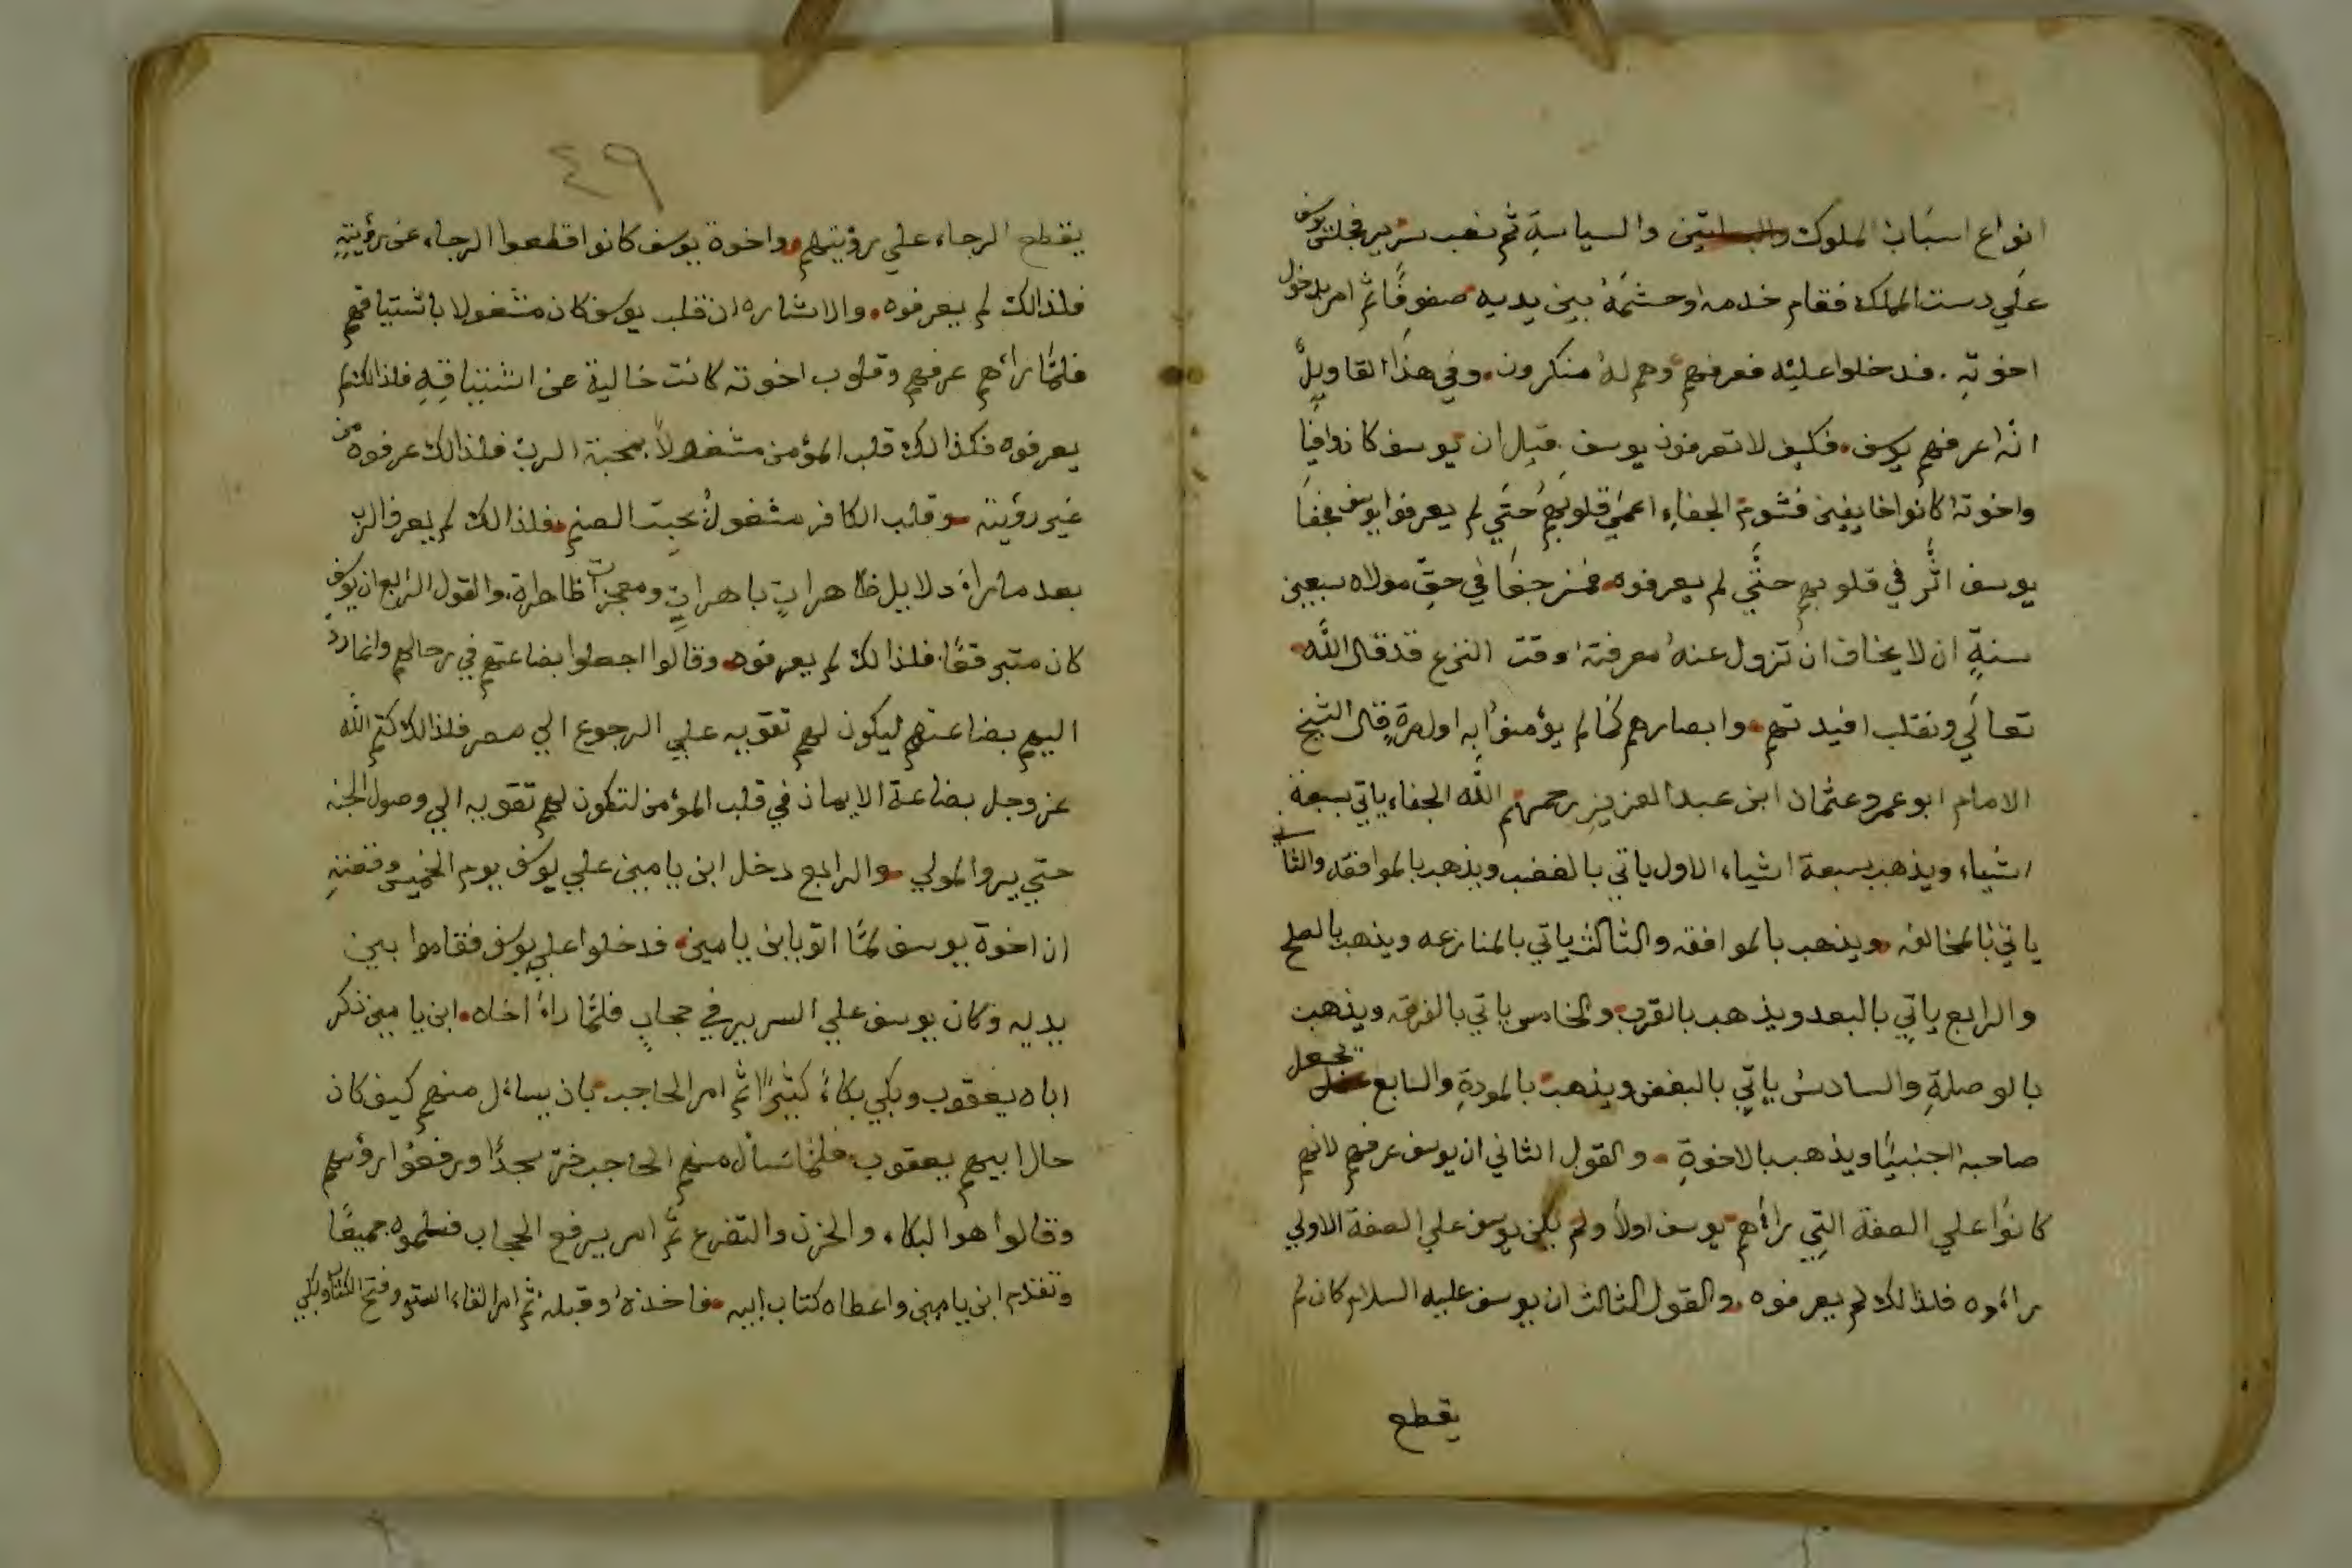 انواع اسباب الملوك والسلاتين والسياسة ثم نصب سرير فجلس يوسف
علي دست المملكة فقام خدمه وحشمه بين يديه صفوفا ثم امر بدخول
اخوته . فدخلوا عليه فعرفهم وهم له منكرون . وفي هذا القاويل
انه اعرفهم يوسف . فكيف لا تعرفون يوسف . قيل ان يوسف كان وافيا
واخوته كانوا خايفين فشوم الجفاء اعمي قلوبهم حتي لم يعرفوا يوسف فجفا
يوسف اثر في قلوبهم حتي لم يعرفوه . فمن جفا في حق مولاه سبعين
سنة ان لا يخاف ان تزول عنه معرفته وقت النزع قد قال الله
تعالي ونقلب افيدتهم . وابصارهم كما لم يؤمنوا به اول مرة قال الشيخ
الامام ابو عمرو عثمان ابن عبد العزيز رحمهم الله الجفاء ياتي بسبعة
اشياء ويذهب بسبعة اشياء الاول ياتي بالغضب ويذهب بالموافقه والثاني
ياتي بالمخالفه . ويذهب بالموافقه والثالث ياتي بالمنازعه ويذهب بالصلح
والرابع ياتي بالبعد ويذهب بالقرب . والخامس ياتي بالفرقه ويذهب
بالوصلة والسادس ياتي بالبغض ويذهب بالمودة والسابع يجعل
صاحبه اجنبيا ويذهب بالاخوة . والقول الثاني ان يوسف عرفهم لانهم
كانوا علي الصفة التي راهم يوسف اولا ولم يكن يوسف علي الصفة الاولي
راءوه فلذالك لم يعرفوه . والقول الثالث ان يوسف عليه السلام كان لم
يقطع
٤٩
يقطع الرجاء علي رؤيتهم . واخوة يوسف كانوا قطعوا الرجاء عن رؤيته
فلذالك لم يعرفوه . والاشاره ان قلب يوسف كان مشغولا باشتياقهم
فلما راهم عرفهم وقلوب اخوته كانت خالية عن اشتياقه فلذالك لم
يعرفوه فكذالك قلب المؤمن مشغولا بمحبة الرب فلذالك عرفوه من
غير رؤيته . وقلب الكافر مشغول بحبت الصنم . فلذالك لم يعرف الرب
بعد ما راه دلايل ظاهرات باهرات ومعجزات ظاهرة . والقول الرابع ان يوسف
كان متبرقعا فلذالك لم يعرفوه . وقالوا اجعلوا بضاعتهم في رحالهم وانما رد
اليهم بضاعتهم ليكون لهم تقويه علي الرجوع الي مصر فلذالك كتم الله
عز وجل بضاعة الايمان في قلب المؤمن لتكون لهم تقويه الي وصول الجنه
حتي يروا المولي . والرابع دخل ابن يامين علي يوسف يوم الخميس وقصته
ان اخوة يوسف لما اتو بابن يامين . فدخلوا علي يوسف فقاموا بين
يديه وكان يوسف علي السرير في حجاب فلما راه اخاه . ابن يامين ذكر
اباه يعقوب وبكي بكاء كثيرا ثم امر الحاجب بان يساءل منهم كيف كان
حال ابيهم يعقوب . فلما سأل منهم الحاجب خر سجدا ورفعوا رؤسهم
وقالوا هو البكاء والحزن والتضرع ثم امر برفع الحجاب فسلموه جميعا
وتقدم ابن يامين واعطاه كتاب ابيه . فاخذه وقبله ثم امر القاء الستر وفتح الكتاب وبكي